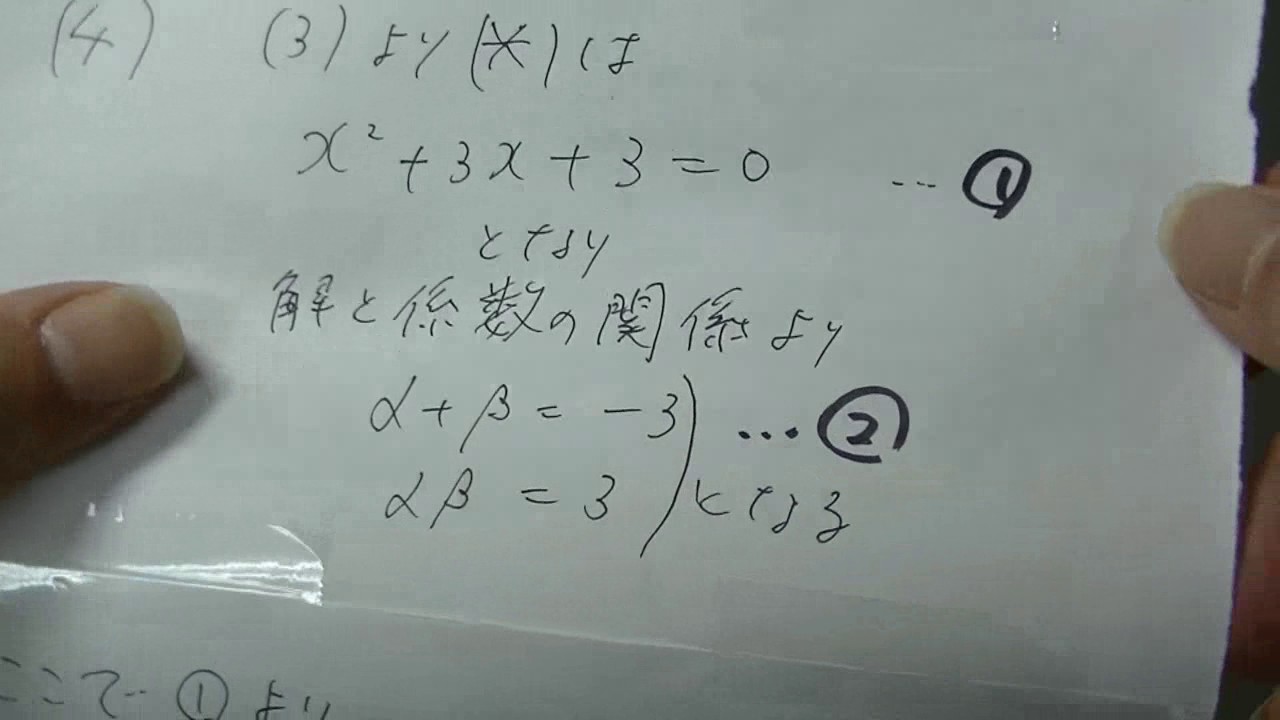 (4) (3)より(*)は
x²+3x+3=0 … ①
となり
解と係数の関係より
α+β=-3 … ②
αβ=3 となる
ここで ①より